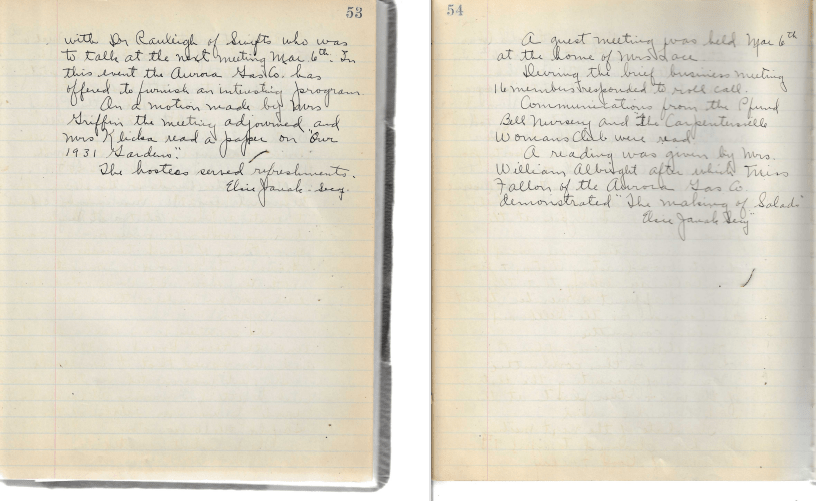 53
with Dr Rauleigh of Swifts who was
to talk at the next meeting Mar. 6th. In
this event the Aurora Gas Co. has
offered to furnish an interesting program
On a motion made by Mrs
Griffin the meeting adjourned and
Mrs Klicka read a paper on "Our
1931 Gardens".
The hostess served refreshments.
Elsie Janak - Secy.
54
A guest meeting was held Mar 6th
at the home of Mrs Lace
During the brief business meeting
16 members responded to roll call.
Communications from the Pfund
Bell Nursery and the Carpentersville
Womans Club were read
A reading was given by Mrs.
William Albright after which Miss
Fallon of the Aurora Gas Co.
demonstrated "The making of Salads"
Elsie Janak Secy